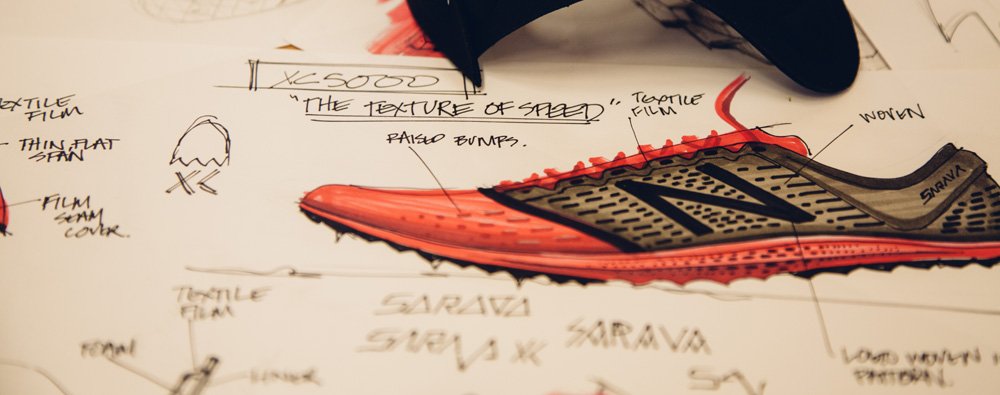 XC5000
"THE TEXTURE OF SPEED"
TEXTILE
FILM
THIN, FLAT
SPAN
FILM
SEAM
COVER.
XC
RAISED BUMPS.
TEXTILE
FILM
WOVEN
N
SARAVA
TEXTILE
FILM
FOAM
LINER
SARAVA
SARAVA XC
SARAVA
LOUD WOVEN
PATTERN.